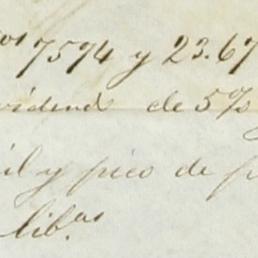 os 7594 y 23.67
vidend de 5%
il y pico de p
lib.as